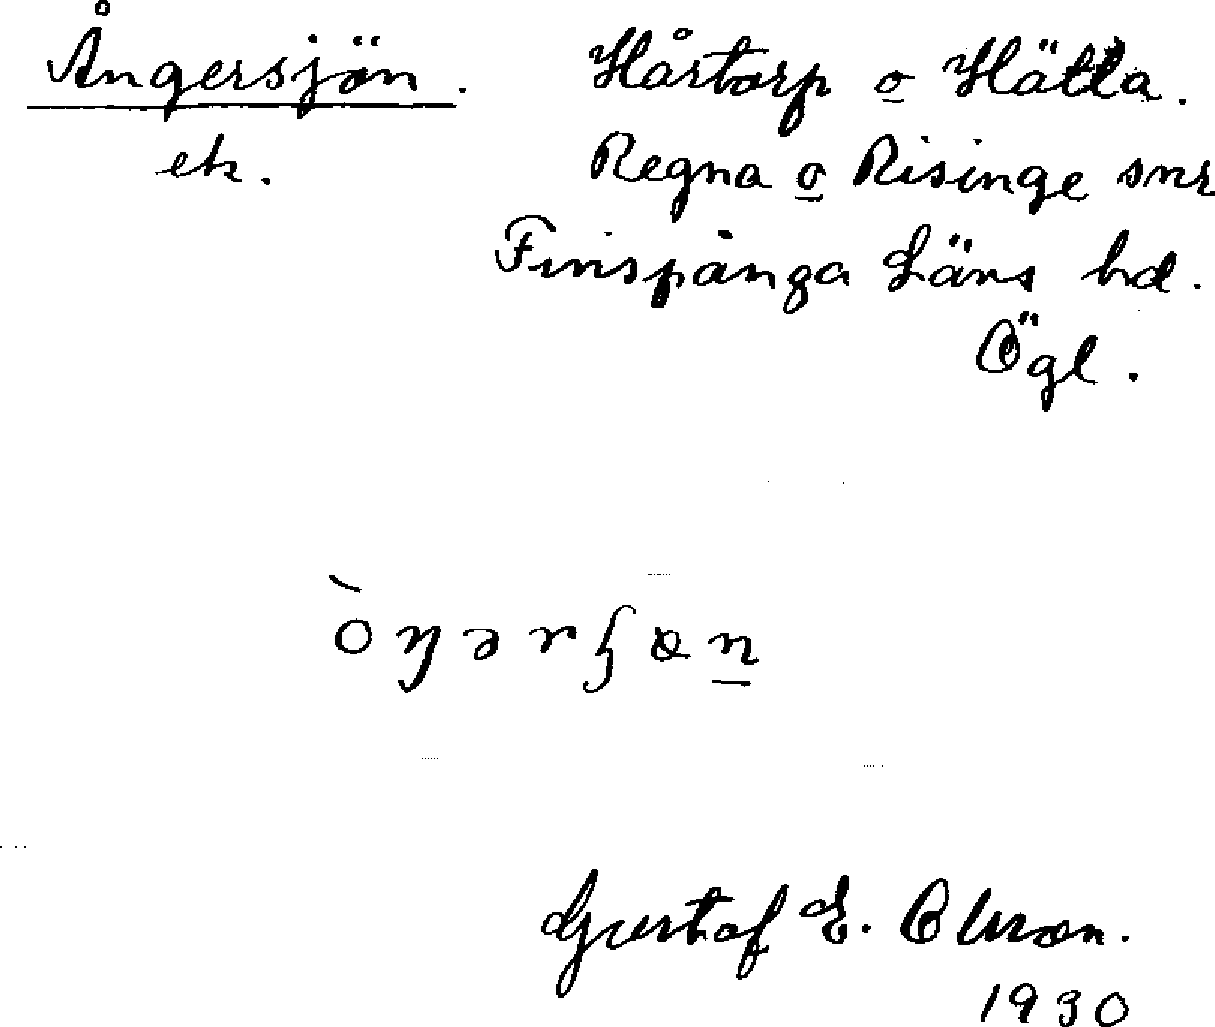 Ångersjön. Hårtorp o Hätta.
ek. Regna o Risinge snr
Finspånga Läns hd.
Ögl.
Gustaf E. Olsson.
1930